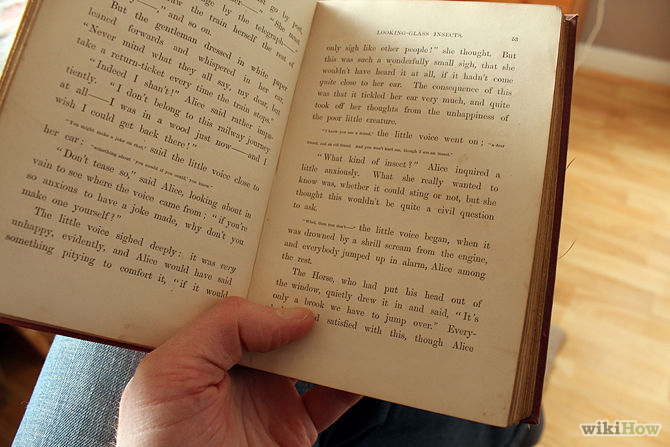 go by post,
"She must
by the telegraph——
draw the train herself the rest of
——," and so on.
But the gentleman dressed in white paper
leaned forwards and whispered in her ear,
"Never mind what they all say, my dear, but
take a return-ticket every time the train stops."
"Indeed I shan't!" Alice said rather impa-
tiently. "I don't belong to this railway journey
at all——I was in a wood just now——and I
wish I could get back there!"
"You might make a joke on that," said the little voice close to
her ear: "something about 'you would if you could,' you know."
"Don't tease so," said Alice, looking about in
vain to see where the voice came from; "if you're
so anxious to have a joke made, why don't you
make one yourself?"
The little voice sighed deeply: it was very
unhappy, evidently, and Alice would have said
something pitying to comfort it, "if it would
LOOKING-GLASS INSECTS. 53
only sigh like other people!" she thought. But
this was such a wonderfully small sigh, that she
wouldn't have heard it at all, if it hadn't come
quite close to her ear. The consequence of this
was that it tickled her ear very much, and quite
took off her thoughts from the unhappiness of
the poor little creature.
"I know you are a friend," the little voice went on; "a dear
friend, and an old friend. And you won't hurt me, though I am an insect."
"What kind of insect?" Alice inquired a
little anxiously. What she really wanted to
know was, whether it could sting or not, but she
thought this wouldn't be quite a civil question
to ask.
"What, then you don't——" the little voice began, when it
was drowned by a shrill scream from the engine,
and everybody jumped up in alarm, Alice among
the rest.
The Horse, who had put his head out of
the window, quietly drew it in and said, "It's
only a brook we have to jump over." Every-
satisfied with this, though Alice
wikiHow